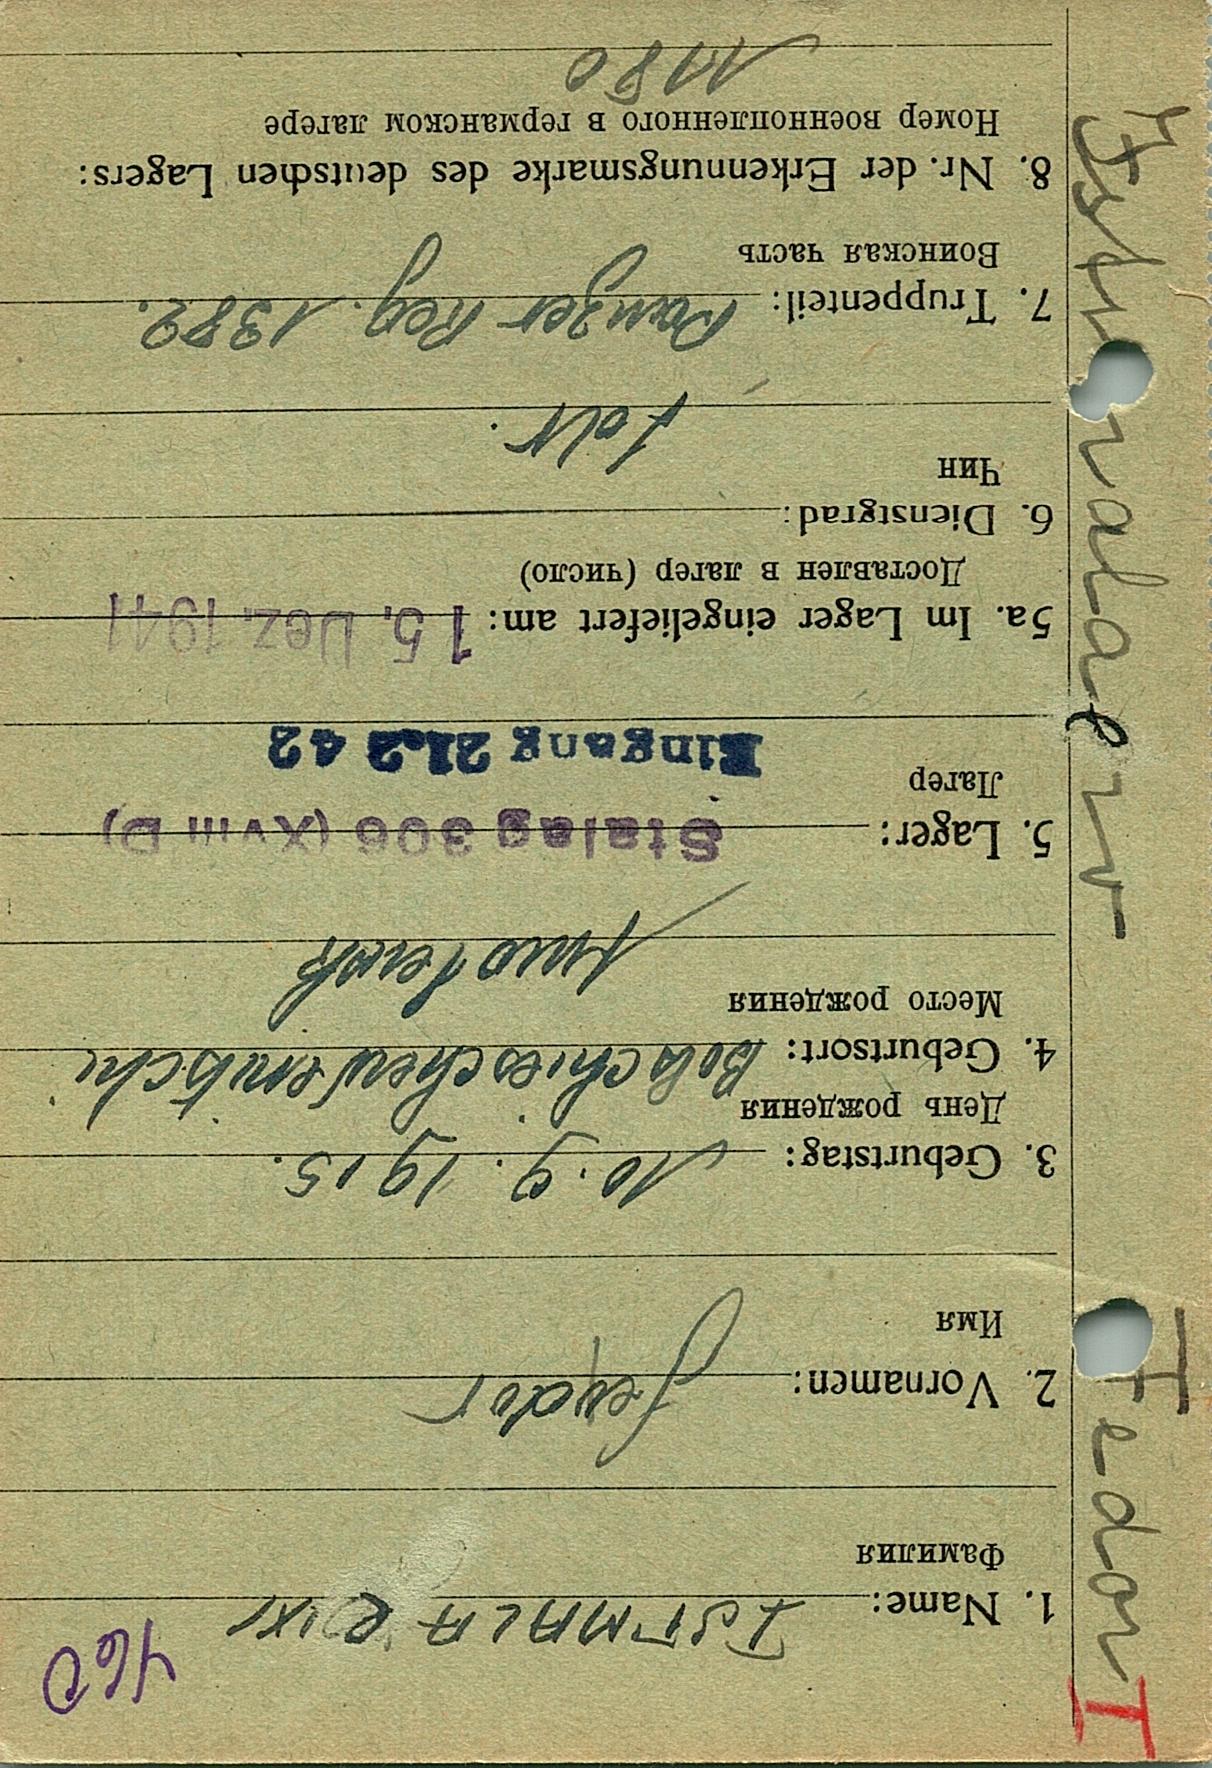 I
460
1. Name:
Фамилия
2. Vornamen: Feodor
Имя
3. Geburtstag: 10.9.1915.
День рождения
4. Geburtsort:
Место рождения
5. Lager: Stalag 306 (XVIII D)
Лагер
Eingang 21.2 42
5a. Im Lager eingeliefert am: 15. Dez. 1941
Доставлен в лагер (число)
6. Dienstgrad:
Чин
Sold.
7. Truppenteil: Panzer Reg. 1382.
Воинская часть
8. Nr. der Erkennungsmarke des deutschen Lagers:
Номер военнопленного в германском лагере
1180
Fedor